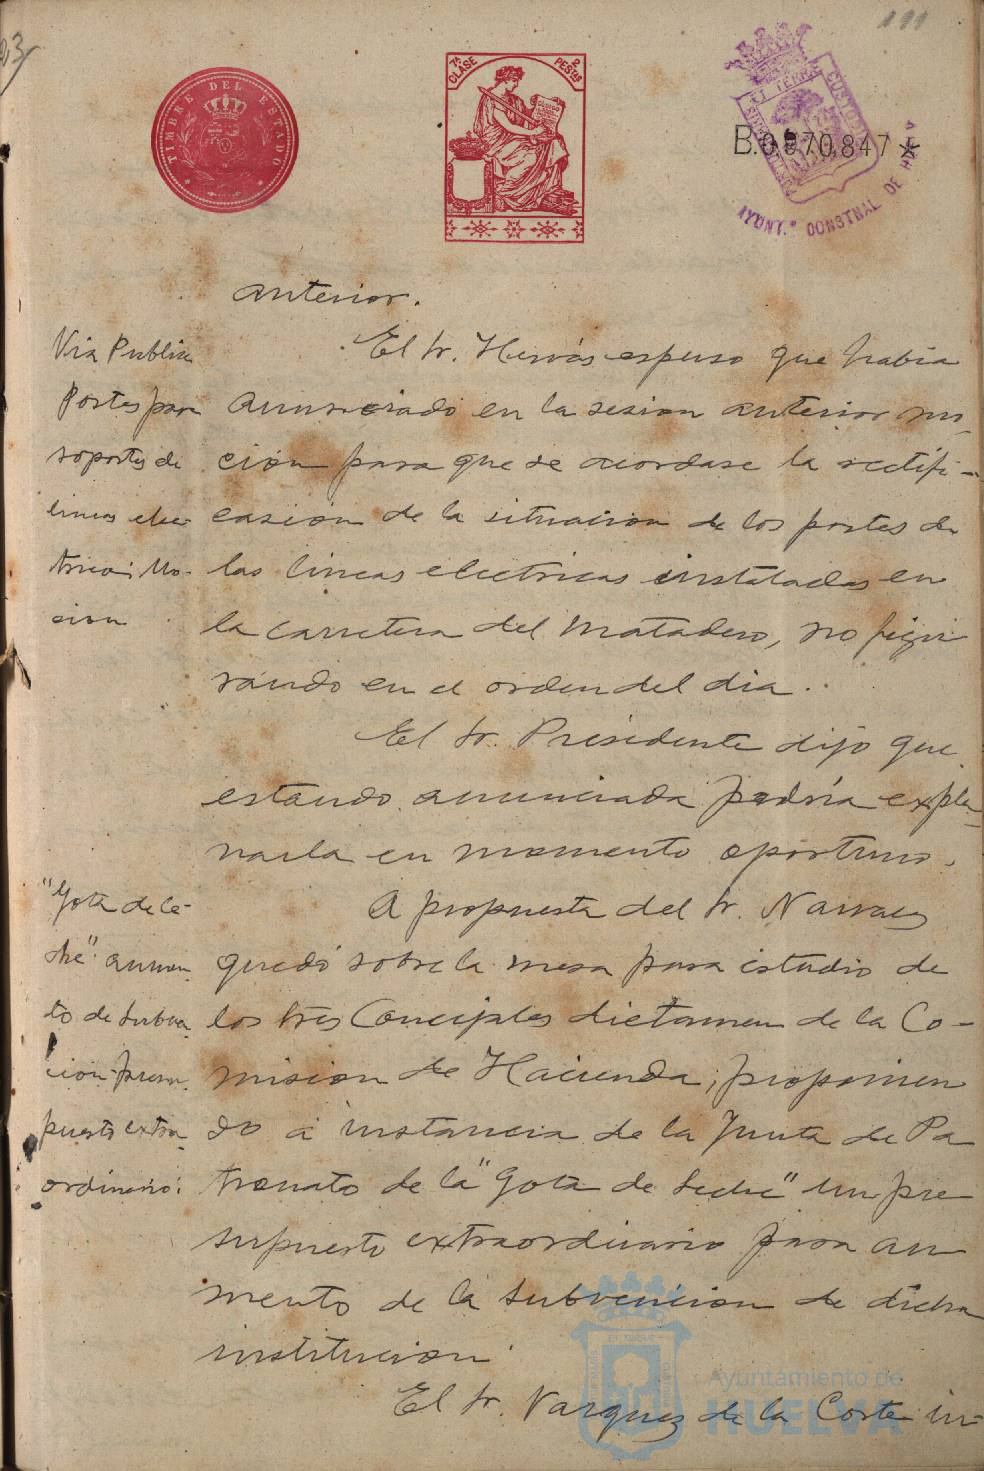 23
111
TIMBRE DEL ESTADO
7ª CLASE
2 PESTAS
CODIGO
B.0.970.847 *
AYUNT.º CONSTNAL DE HUELVA
anterior.
Via Publica
Postes para
soportes de
lineas elec-
tricas: Mo-
cion
El Sr. Hervás espuso que habia
anunciado en la sesion anterior mo-
cion para que se acordase la rectifi-
casión de la situacion de los postes de
las lineas electricas instaladas en
la carretera del Matadero, no figu
rando en el orden del dia.
El Sr. Presidente dijo que
estando anunciada podria expla-
narla en momento oportuno.
"Gota de le-
che" aumen
to de subven
cion-presu
puesto extra
ordinario:
A propuesta del Sr. Narvaez
quedó sobre la mesa para estudio de
los tres Concejales dictamen de la Co-
mision de Hacienda, proponien
do a instancia de la Junta de Pa
tronato de la "Gota de Leche" un pre
supuesto extraordinario para au
mento de la subvencion de dicha
institucion.
El Sr. Vazquez de la Corte in-
Ayuntamiento de
HUELVA